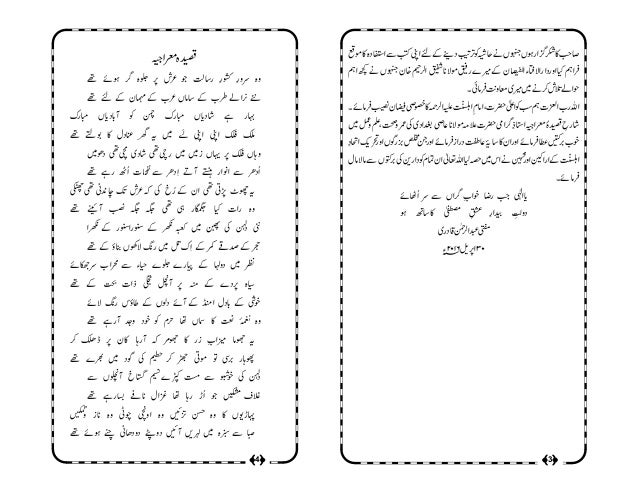 صاحب کا شکر گزار ہوں جنہوں نے حاشیہ کو ترتیب دینے کے لئے اپنی کتب سے استفادہ کا موقع
فراہم کیا اور دار الافتاء الفیضان کے میرے رفیق مولانا شفیق الرحیم خان جنہوں نے کچھ اہم
حوالے تلاش کرنے میں میری معاونت فرمائی۔
اللہ رب العزت ہم سب کو اعلیٰ حضرت، امام اہلسنّت علیہ الرحمہ کا خصوصی فیضان نصیب فرمائے۔
شارح قصیدۂ معراجیہ استاذ گرامی حضرت علامہ مولانا عاصی بغدادی کی عمر و صحت، علم و عمل میں
خوب برکتیں عطا فرمائے اور ان کا سایۂ عاطفت دراز فرمائے اور جن مخلص بزرگوں اور تحریک اتحاد
اہلسنّت کے اراکین اور محبین نے اس میں حصہ لیا اللہ تعالیٰ ان تمام کو دارین کی برکتوں سے مالا مال
فرمائے۔
یا الٰہی جب رضا خواب گراں سے سر اٹھائے
دولتِ بیدار عشقِ مصطفیٰ کا ساتھ ہو
مفتی عبدالرحمٰن قادری
۳۰ اپریل ۲۰۱۶ء
3
قصیدہ معراجیہ
وہ سرورِ کشورِ رسالت جو عرش پر جلوہ گر ہوئے تھے
نئے نرالے طرب کے ساماں عرب کے مہمان کے لئے تھے
بہار ہے شادیاں مبارک چمن کو آبادیاں مبارک
ملک فلک اپنی اپنی لے میں یہ گھر عنادل کا بولتے تھے
وہاں فلک پر یہاں زمیں میں رچی تھی شادی مچی تھی دھومیں
اُدھر سے انوار ہنستے آتے اِدھر سے نفحات اُٹھ رہے تھے
یہ چھوٹ پڑتی تھی ان کے رخ کی کہ عرش تک چاندنی تھی چھٹکی
وہ رات کیا جگمگا رہی تھی جگہ جگہ نصب آئینے تھے
نئی دلہن کی پھبن میں کعبہ نکھر کے سنورا سنور کے نکھرا
حجر کے صدقے کمر کے اِک تل میں رنگ لاکھوں بناؤ کے تھے
نظر میں دولہا کے پیارے جلوے حیاء سے محراب سر جھکائے
سیاہ پردے کے منہ پر آنچل تجلّی ذات بحت کے تھے
خوشی کے بادل امنڈ کے آئے دلوں کے طاؤس رنگ لائے
وہ نغمۂ نعت کا سماں تھا حرم کو خود وجد آرہے تھے
یہ جھوما میزابِ زر کا جھومر کہ آرہا کان پر ڈھلک کر
پھوہار برسی تو موتی جھڑ کر حطیم کی گود میں بھرے تھے
دلہن کی خوشبو سے مست کپڑے نسیمِ گستاخ آنچلوں سے
غلافِ مشکیں جو اُڑ رہا تھا غزال نافے بسا رہے تھے
پہاڑیوں کا وہ حسن تزئیں وہ اونچی چوٹی وہ ناز و تمکیں
صبا سے سبزہ میں لہریں آتیں دوپٹے دھانی چنے ہوئے تھے
4